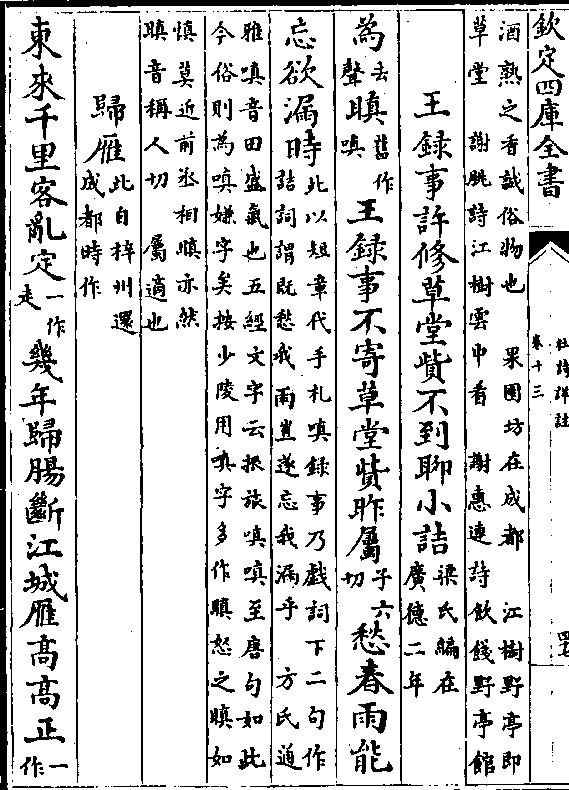 欽定四庫全書
杜詩詳註
卷十三
四七
酒熟之香誠俗物也　果園坊在成都　江樹野亭即
草堂　謝朓詩江樹雲中看　謝惠連詩飲餞野亭館
王録事許修草堂貲不到聊小詰梁氏編在廣德二年
為去聲瞋舊作嗔王録事不寄草堂貲昨屬子六切愁春雨能
忘欲漏時此以短章代手札嗔録事乃戲詞下二句作
詰詞謂既愁我雨豈遂忘我漏乎　方氏通
雅嗔音田盛氣也五經文字云振旅嗔嗔至唐句如此
今俗則為嗔嫌字矣按少陵用嗔字多作瞋怒之瞋如
慎莫近前丞相瞋亦然
瞋音稱人切　屬適也
歸雁此自梓州還成都時作
東來千里客亂定一作走幾年歸腸斷江城雁髙髙正一作